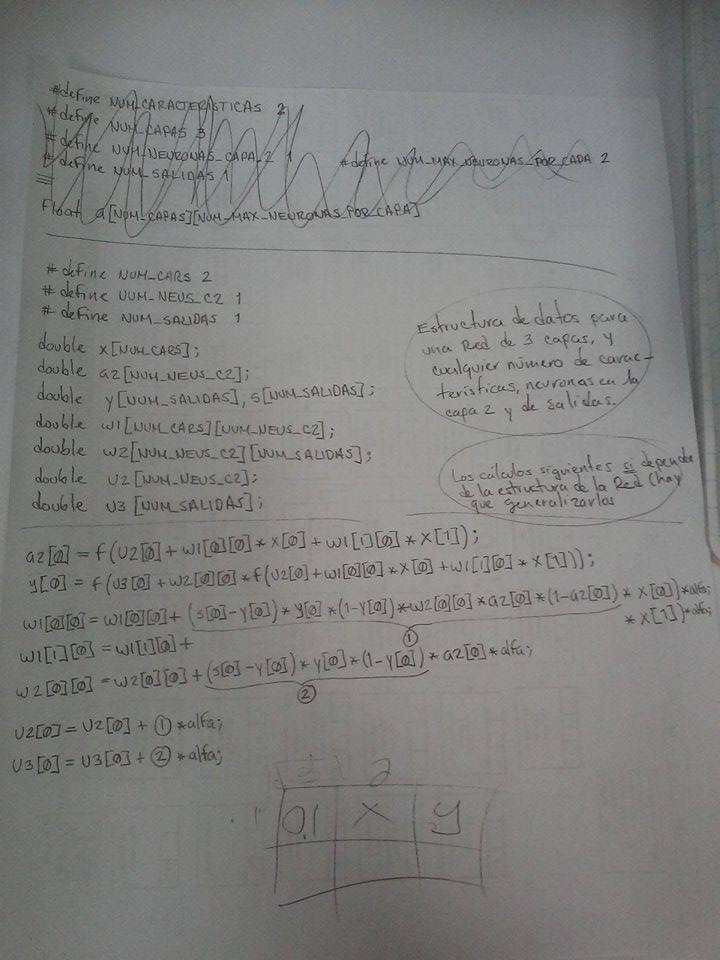 #define NUM_CARACTERISTICAS 2
#define NUM_CAPAS 3
#define NUM_NEURONAS_CAPA_2 1
#define NUM_MAX_NEURONAS_POR_CAPA 2
#define NUM_SALIDAS 1
float a[NUM_CAPAS][NUM_MAX_NEURONAS_POR_CAPA]
#define NUM_CARS 2
#define NUM_NEUS_C2 1
#define NUM_SALIDAS 1
double x[NUM_CARS];
double a2[NUM_NEUS_C2];
double y[NUM_SALIDAS], s[NUM_SALIDAS];
double w1[NUM_CARS][NUM_NEUS_C2];
double w2[NUM_NEUS_C2][NUM_SALIDAS];
double U2[NUM_NEUS_C2];
double U3[NUM_SALIDAS];
Estructura de datos para
una Red de 3 capas, y
cualquier número de carac-
terísticas, neuronas en la
capa 2 y de salidas.
Los cálculos siguientes si dependen
de la estructura de la Red (hay
que generalizarlos
a2[0] = f(U2[0] + w1[0][0] * x[0] + w1[1][0] * x[1]);
y[0] = f(U3[0] + w2[0][0] * f(U2[0] + w1[0][0] * x[0] + w1[1][0] * x[1]));
w1[0][0] = w1[0][0] + (s[0] - y[0]) * y[0] * (1 - y[0]) * w2[0][0] * a2[0] * (1 - a2[0]) * x[0]) * alfa;
1
w1[1][0] = w1[1][0] + * x[1]) * alfa;
w2[0][0] = w2[0][0] + (s[0] - y[0]) * y[0] * (1 - y[0]) * a2[0] * alfa;
2
U2[0] = U2[0] + 1 * alfa;
U3[0] = U3[0] + 2 * alfa;
2
0.1 x y